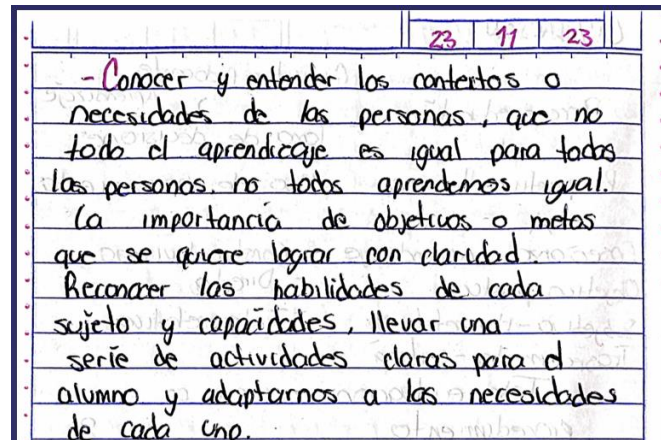 23 11 23
- Conocer y entender los contextos o
necesidades de las personas, que no
todo el aprendizaje es igual para todas
las personas, no todos aprendemos igual.
La importancia de objetivos o metas
que se quiere lograr con claridad.
Reconocer las habilidades de cada
sujeto y capacidades, llevar una
serie de actividades claras para el
alumno y adaptarnos a las necesidades
de cada uno.